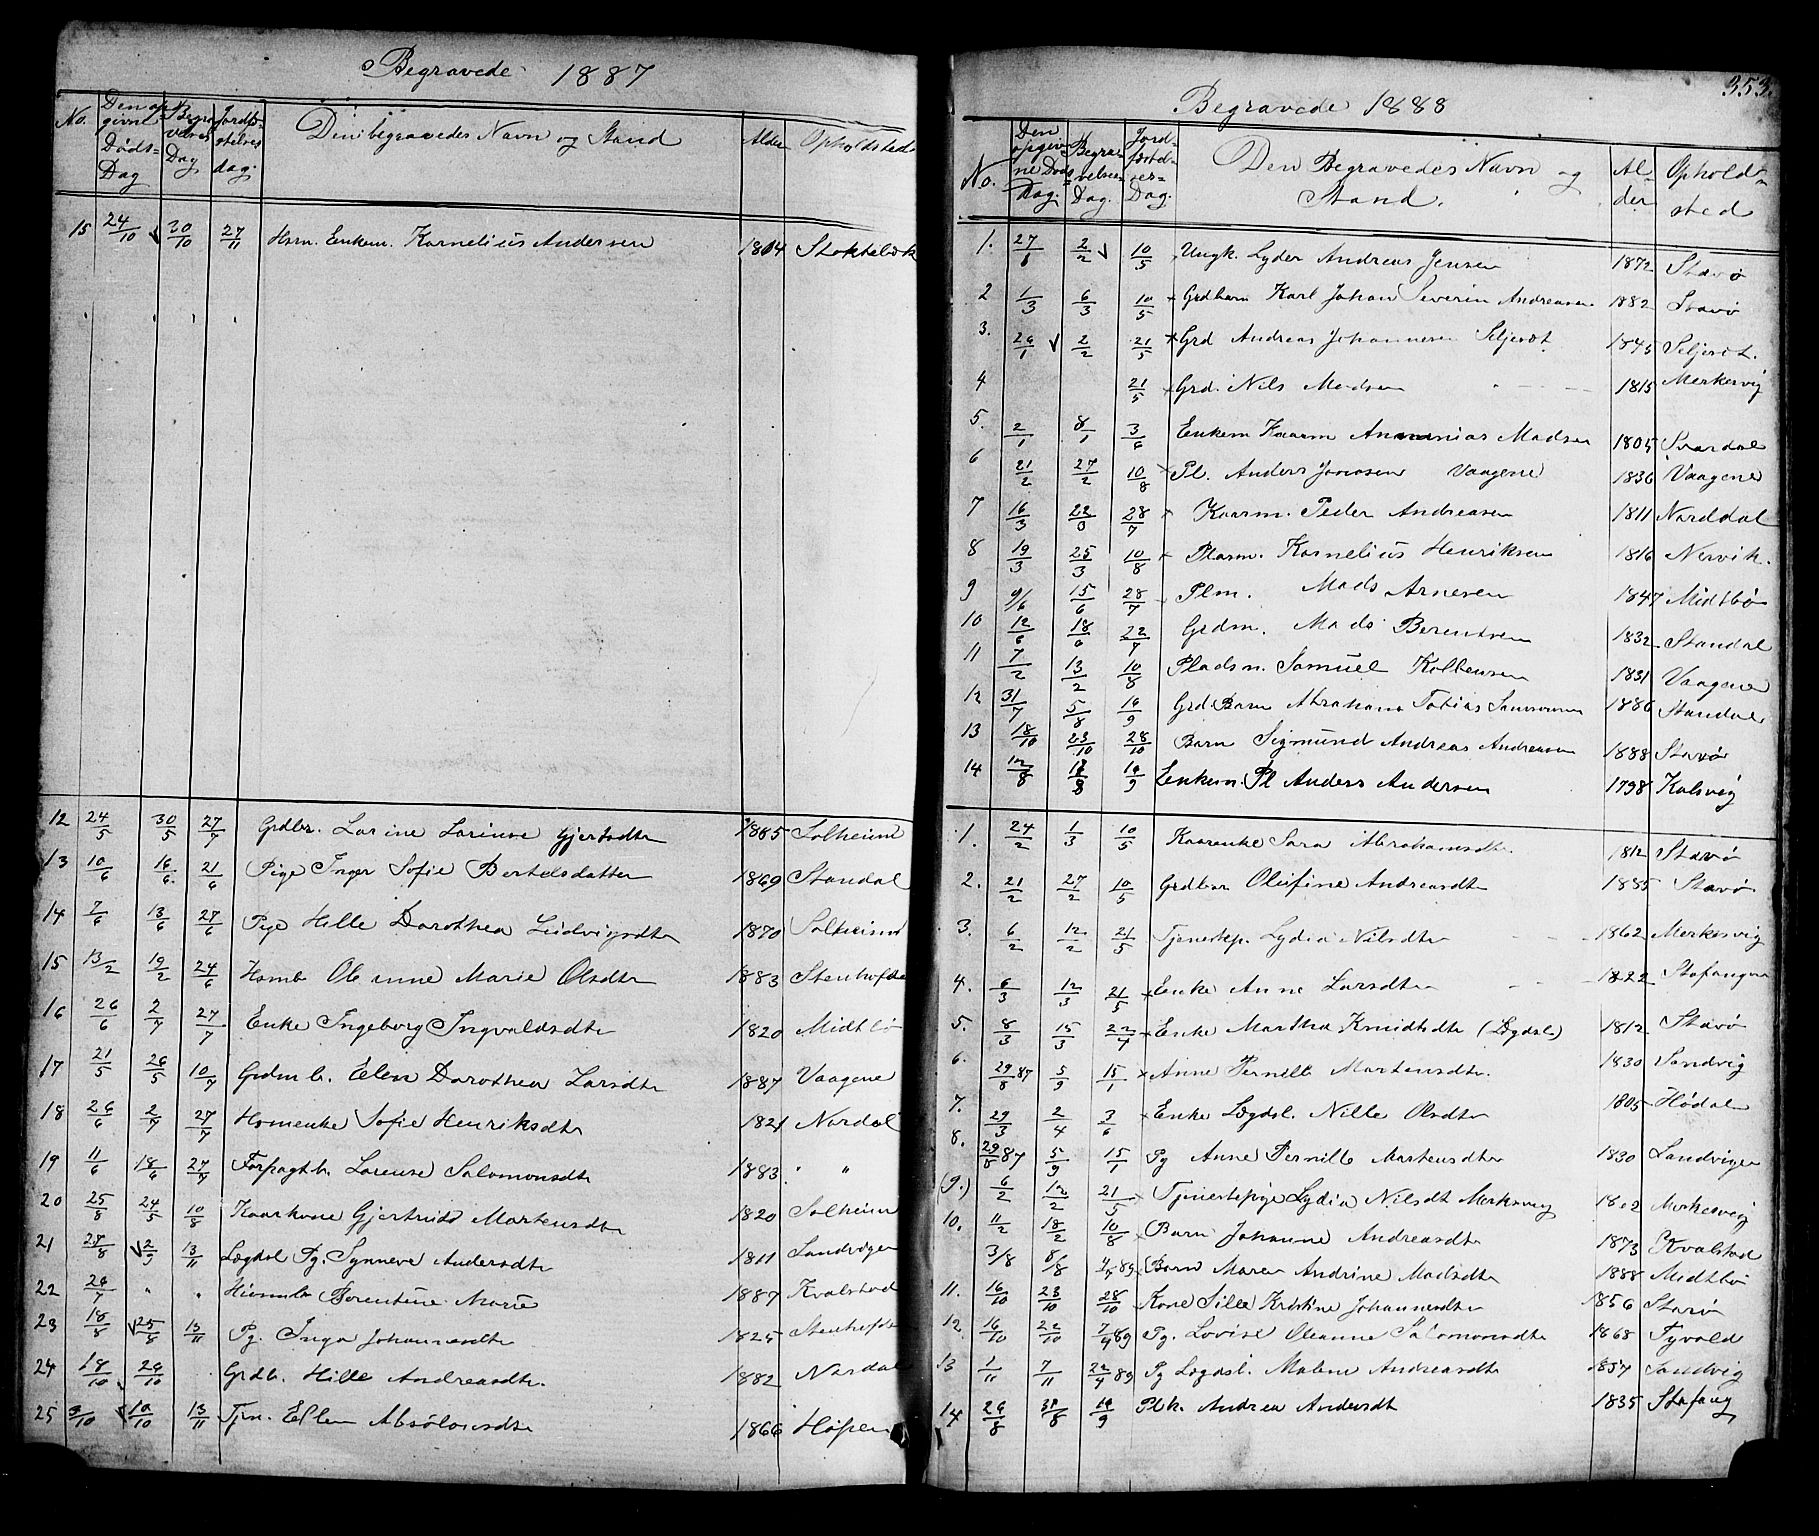 Begravede 1887
No. Den opgivne Døds-Dag Begravelses Dag Jordfæstelses dag. Den begravedes Navn og Stand Alder Opholdsted
15 24/10 30/10 27/11 Hsm. Enkem. Kornelius Andersen 1804
12 24/5 30/5 27/7 Grdbr. Larine Lorense Gjertsdtr 1885 Solheim
13 10/6 16/6. 21/6 Pige Inger Sofie Bertelsdatter 1869 Standal
14 7/6 13/6 27/6 Pige Hille Dorothea Ludvigsdtr 1870 Solheim
15 13/2 19/2 24/6 Hsmb Oleanne Marie Olsdtr 1883
16 26/6 2/7 27/7 Enke Ingeborg Ingvaldsdtr 1820 Midtbø
17 21/5 26/5 10/7 Grdm b. Elen Dorothea Larsdtr 1887 Vaagene
18 26/6 2/7 27/7 Hsmenke Sofie Henriksdtr 1821 Nordal
19 11/6 18/6 27/7 Forpagtb. Lorense Salomonsdtr 1883 " "
20 25/8 24/5 10/8 Kaarkone Gjertrud Mortensdtr 1820 Solheim
21 27/8 2/9 13/11 Lægdsl Pg. Synneve Andersdtr 1811 Sandvigen
22 " " Florentine Marie 1887 Kvalstad
23 18/8 25/8 13/11 Pg. Inga Johannesdtr 1825
24 18/10 26/10 Grdb. Hille Andreasdtr. 1882 Nordal
25 3/10 10/10 13/11 Tjn. Ellen Absolonsdtr 1866 Høpen
353.
Begravede 1888
No. Den opgivne Døds Dag. Begravelses Dag. Jordfæstelses-Dag. Den Begravedes Navn og Stand. Alder Opholdssted
1. 27/1 2/2 10/5 Ungk. Lyder Andreas Jensen 1872 Stavø
2 1/3 6/3 10/5 Grdbarn Karl Johan Severin Andreasen 1882 Stavø
3. 26/1 2/2 21/5 Grd Andreas Johannesen Seljesæt 1845 Seljesæt.
4 21/5 Grd. Nils Madsen 1815 Merkesvig
5. 2/1 8/1 3/6 Enkem Kaarm Ananias Madsen 1805
6 21/2 27/2 10/8 Pl. Anders Jonasen Vaagene 1836 Vaagene
7 16/3 22/3 28/7 Kaarm. Peder Andreasen 1811 Norddal
8 19/3 25/3 10/8 Plasm. Kornelius Henriksen 1816 Nervik.
9 9/6 15/6 28/7 Plm. Mads Arnesen 1847 Midtbø
10 12/6 18/6 22/7 Grdm. Mads Berentsen 1832 Standal
11 7/2 13/2 10/8 Pladsm. Samuel Kolbensen 1831 Vaagene
12 31/7 5/8 16/9 Grd. Barn Abraham Tobias Samsonsen 1886 Standal
13 18/10 23/10 28/10 Barn Sigmund Andreas Andreasen 1888 Stavø
14 12/8 18/8 16/9 Enkem. Pl Anders Andersen 1798 Kalsvig
1. 24/2 1/3 10/5 Kaarenke Sara Abrahamsdtr. 1812 Stavø
2. 21/2 27/2 10/5 Grdbar Olufine Andreasdtr 1885 Stavø
3. 6/2 12/2 21/5 Tjenestep. Lydia Nilsdtr 1862 Merkesvig
4. 6/3 12/3 21/5 Enke Anne Larsdtr 1822 Stafangen
5. 8/3 15/3 22/4 Enke Martha Knudtsdtr (Lægdsl) 1812 Stavø
6. 29/8 87 5/9 15/1 Anne Pernille Martensdtr. 1830 Sandvig
7. 29/3 2/4 3/6 Enke Lægdsl. Nille Olsdtr 1805 Hødal
8. 29/8 87 5/9 15/1 Pg Anne Pernille Martensdtr 1830 Sandvigen
(9.) 6/2 12/2 21/5 Tjenestepige Lydia Nilsdt Merkesvig 1862 Merkesvig
10. 11/2 18/2 10/8 Barn Johanne Andreasdtr 1873 Kvalstad
3/8 8/8 7/4 89 Barn Maren Andrine Madsdtr 1888 Midtbø
11. 16/10 23/10 28/10 Kone Sille Kristine Johannesdtr 1856 Stavø
12. 16/10 22/10 7/4 89 Pg. Lovise Oleanne Salomonsdtr 1868 Tyvold
13 1/11 7/11 22/4 89 Pg Lægdsl. Malene Andreasdtr 1857 Sandvig
14 26/8 31/8 16/9 Plk. Andrea Andersdt 1835 Stafang